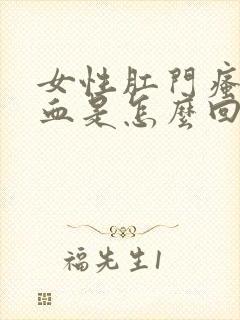 女性肛門瘙
血是怎麼回
福先生1